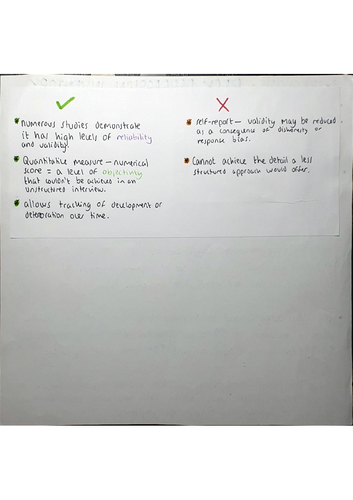 ✓
numerous studies demonstrate
it has high levels of reliability
and validity.
Quantitative measure – numerical
score = a level of objectivity
that wouldn't be achieved in an
unstructured interview.
allows tracking of development or
deterioration over time.
X
self-report – validity may be reduced
as a consequence of dishonesty or
response bias.
Cannot achieve the detail a less
structured approach would offer.